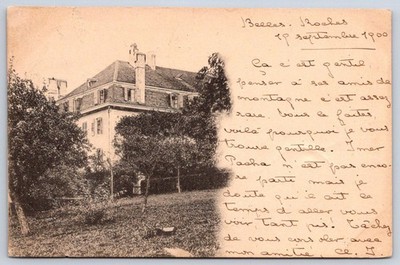 Belles-Roches
19 septembre 1900
Ça c'est gentil
penser à ses amis de
montagne c'est assez
rare. Vous le faites
voilà pourquoi je vous
trouve gentille. Imer
Pacha n'est pas enco-
re parti mais je
doute qu'il ait le
temps d'aller vous
voir tant pis. Tâchez
de vous consoler avec
mon amitié. Cl. J.